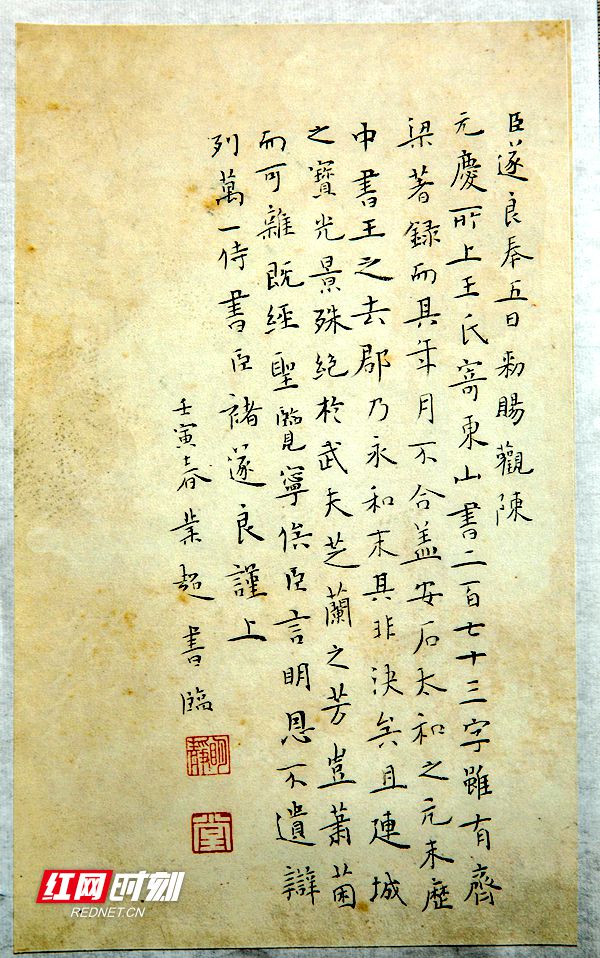 臣遂良奉五日勑賜觀陳
元慶所上王氏寄東山書二百七十三字雖有齊
梁著録而其年月不合盖安石太和之元未歷
中書王之去郡乃永和末其非決矣且連城
之寶光景殊絶於武夫芝蘭之芳豈蕭茵
而可雜既經聖覽寧俟臣言明恩不遺辯
列萬一侍書臣褚遂良謹上
壬寅春業超書臨
靜
堂
红网时刻
REDNET.CN